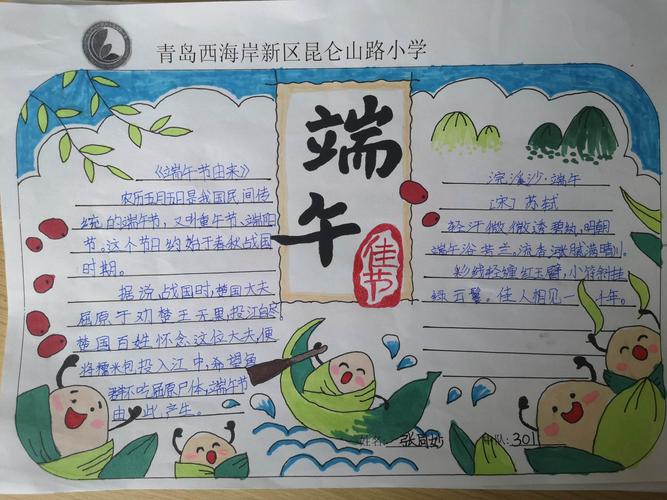 青岛西海岸新区昆仑山路小学
端午
佳节
《端午节由来》
农历五月五日是我国民间传
统的端午节，又叫重午节、端阳
节。这个节日约始于春秋战国
时期。
据说，战国时，楚国大夫
屈原于劝楚王无果，投江自尽
楚国百姓怀念这位大夫，便
将糯米包投入江中，希望鱼
群不吃屈原尸体，端午节
由此产生。
浣溪沙·端午
[宋] 苏轼
轻汗微微透碧纨，明朝
端午浴芳兰。流香涨腻满晴川。
彩线轻缠红玉臂，小符斜挂
绿云鬟。佳人相见一千年。
姓名：张
中队：301